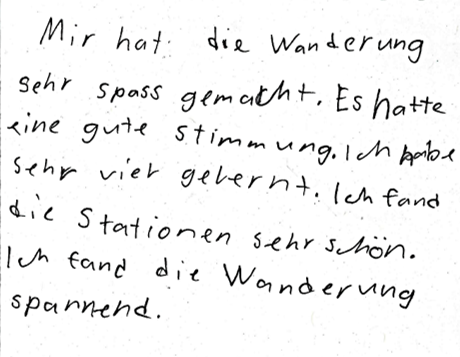 Mir hat die Wanderung
sehr spass gemacht. Es hatte
eine gute stimmung. Ich habe
sehr viel gelernt. Ich fand
die Stationen sehr schön.
Ich fand die Wanderung
spannend.